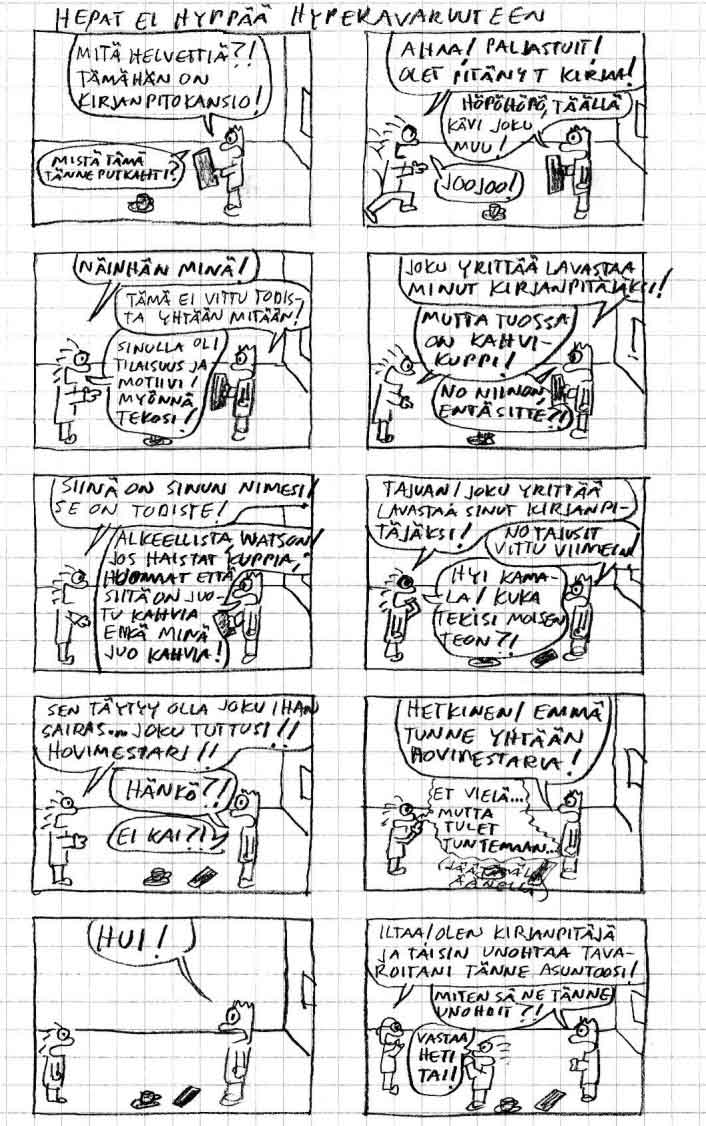 HEPAT EI HYPPÄÄ HYPERAVARUUTEEN
MITÄ HELVETTIÄ?!
TÄMÄHÄN ON
KIRJANPITOKANSIO!
MISTÄ TÄMÄ
TÄNNE PUTKAHTI?
AHAA! PALJASTUIT!
OLET PITÄNYT KIRJAA!
HÖPÖHÖPÖ, TÄÄLLÄ
KÄVI JOKU
MUU!
JOOJOO!
NÄINHÄN MINÄ!
TÄMÄ EI VITTU TODIS-
TA YHTÄÄN MITÄÄN!
SINULLA OLI
TILAISUUS JA
MOTIIVI!
MYÖNNÄ
TEKOSI!
JOKU YRITTÄÄ LAVASTAA
MINUT KIRJANPITÄJÄKSI!
MUTTA TUOSSA
ON KAHVI-
KUPPI!
NO NIIN ON,
ENTÄ SITTE?!
SIINÄ ON SINUN NIMESI!
SE ON TODISTE!
ALKEELLISTA, WATSON!
JOS HAISTAT KUPPIA,
HUOMAAT ETTÄ
SIITÄ ON JUO-
TU KAHVIA
ENKÄ MINÄ
JUO KAHVIA!
TAJUAN! JOKU YRITTÄÄ
LAVASTAA SINUT KIRJANPI-
TÄJÄKSI!
NO TAJUSIT
VITTU VIIMEIN!
HYI KAMA-
LA! KUKA
TEKISI MOISEN
TEON?!
SEN TÄYTYY OLLA JOKU IHAN
SAIRAS... JOKU TUTTUSI!!
HOVIMESTARI!!
HÄNKÖ?!
EI KAI?!
HETKINEN! EMMÄ
TUNNE YHTÄÄN
HOVIMESTARIA!
ET VIELÄ...
MUTTA
TULET
TUNTEMAAN...
HUI!
ILTAA! OLEN KIRJANPITÄJÄ
JA TAISIN UNOHTAA TAVA-
ROITANI TÄNNE ASUNTOOSI!
MITEN SÄ NE TÄNNE
UNOHDIT?!
VASTAA
HETI
TAI!